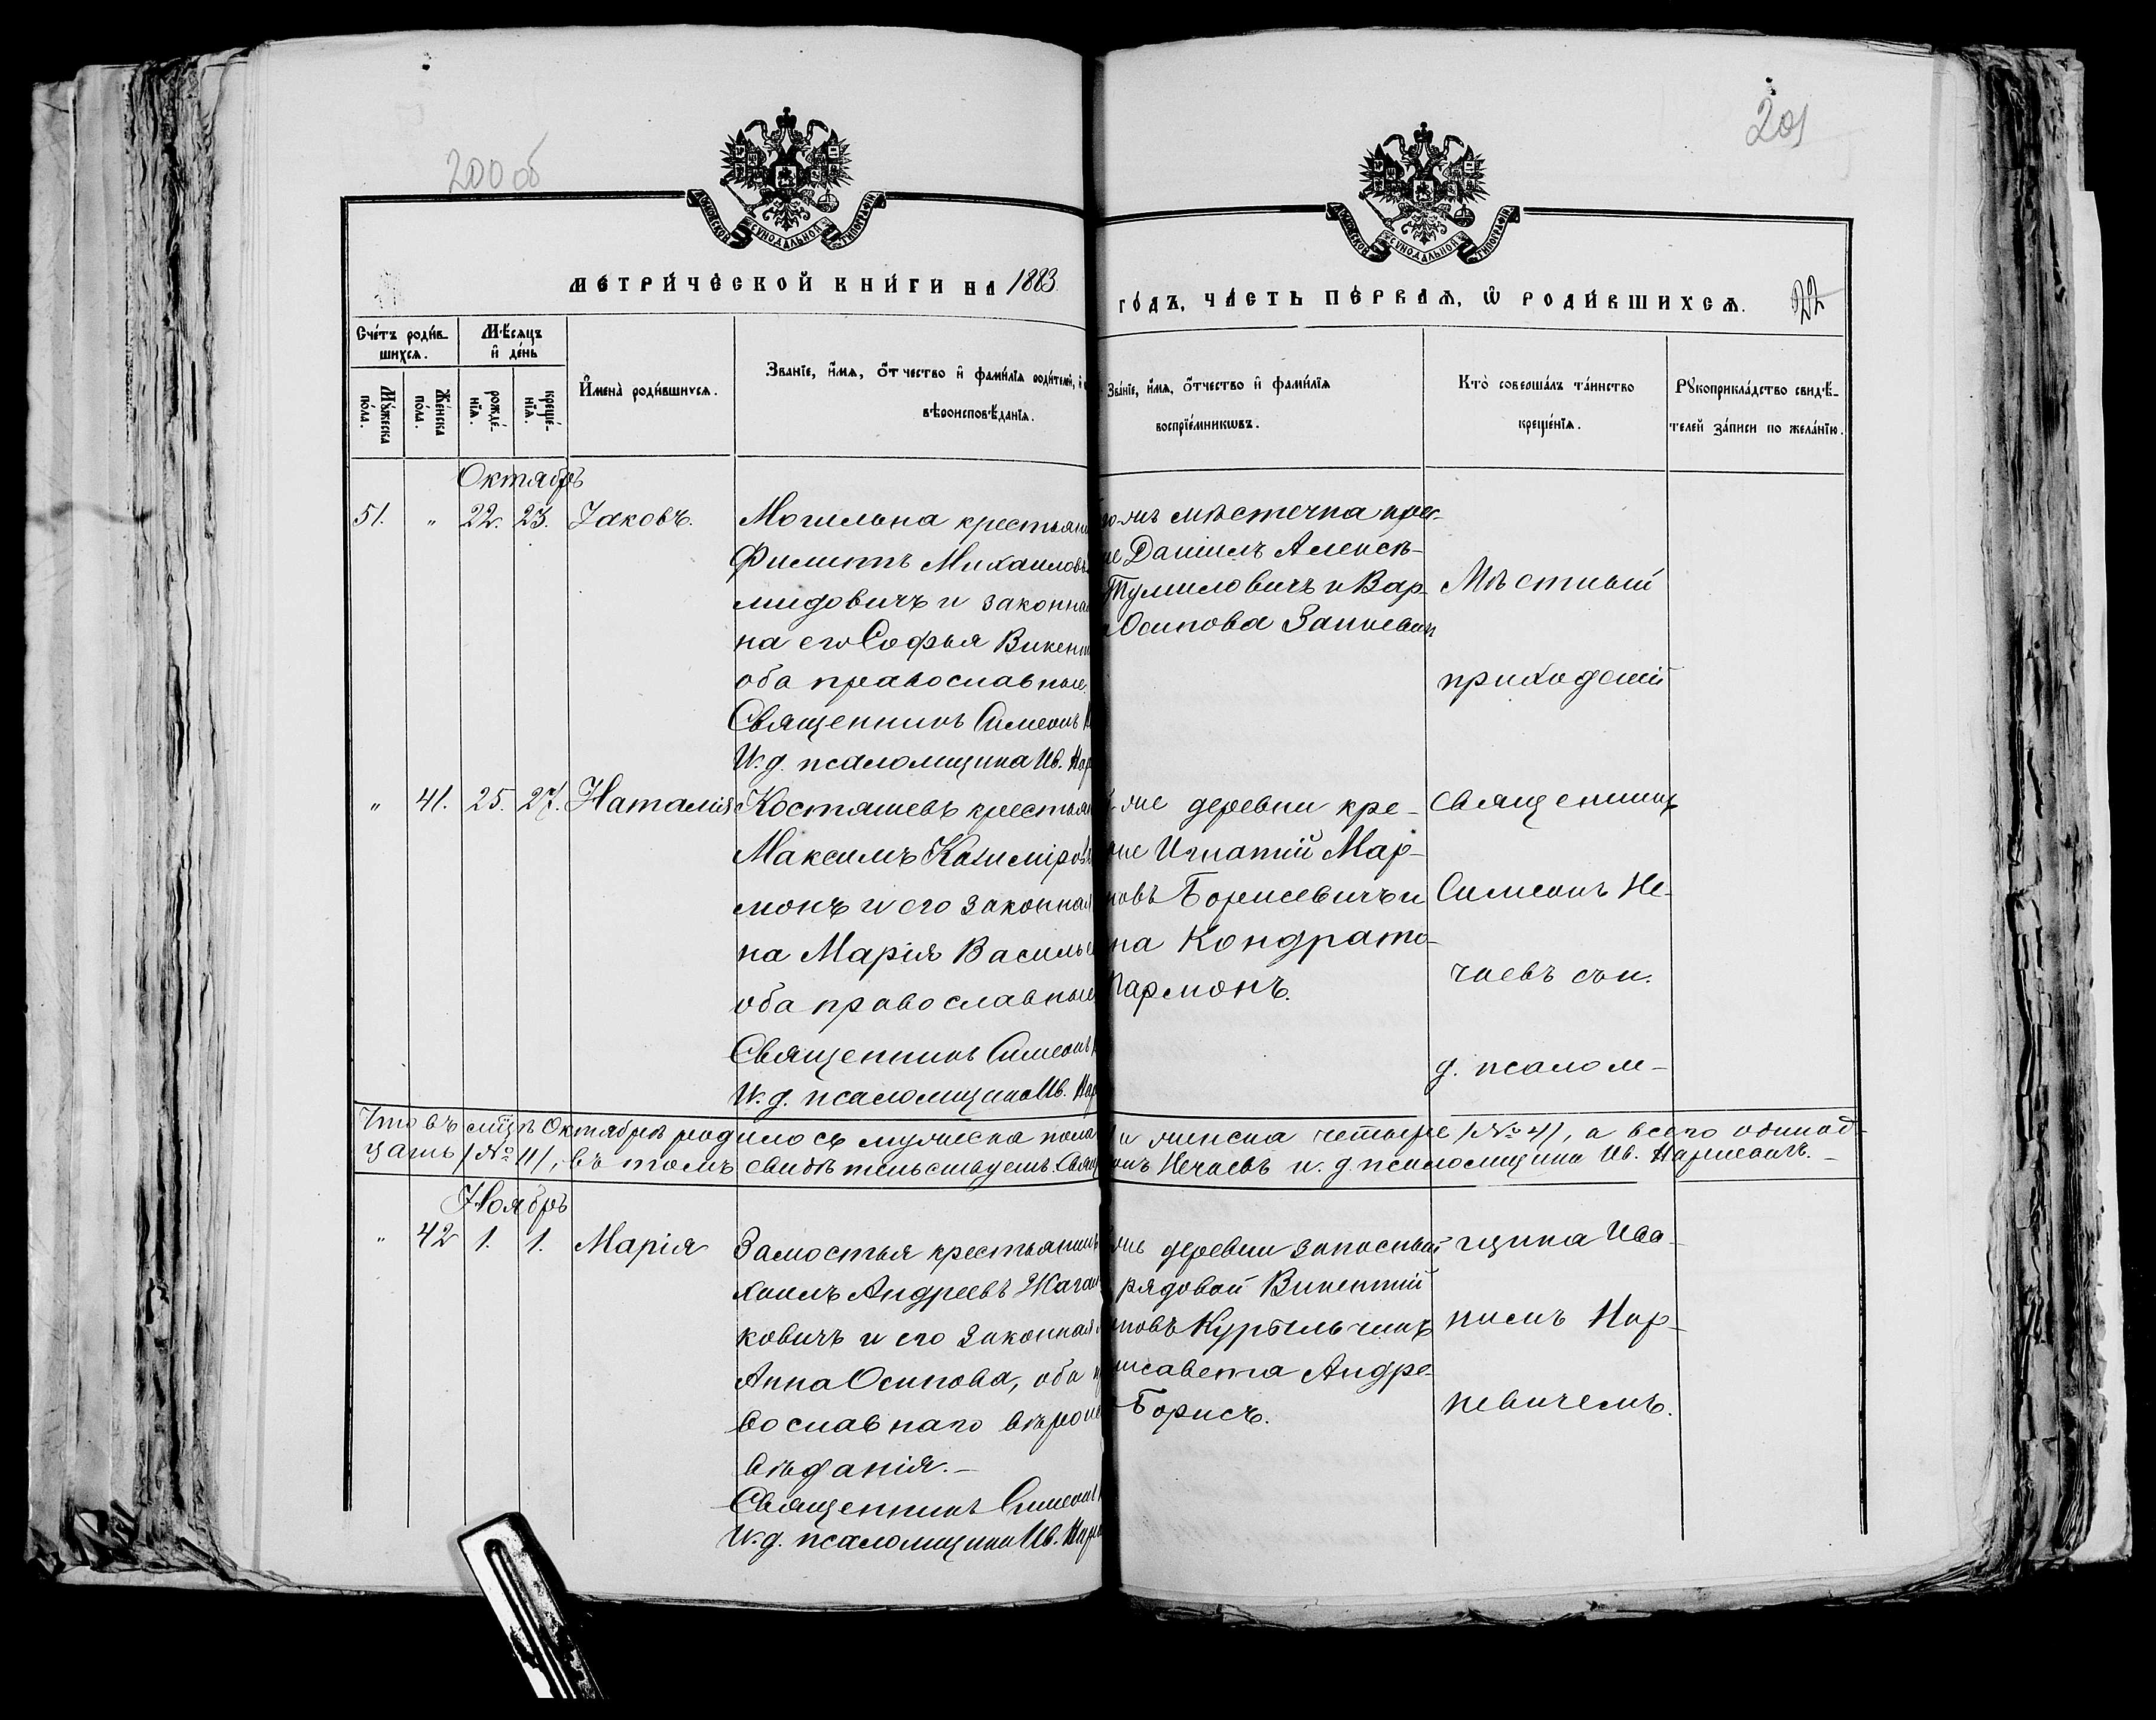 200 об
201
МОСКОВСКОЙ СѴНОДАЛЬНОЙ ТИПОГРАФІИ
МОСКОВСКОЙ СѴНОДАЛЬНОЙ ТИПОГРАФІИ
МЕТРИ́ЧЕСКОЙ КНИ́ГИ НА 1883
ГО́ДЪ, ЧА́СТЬ ПЕ́РВАѦ, Ѡ҆ РОДИ́ВШИХСѦ. 22
Сче́тъ роди́в-
шихсѧ.
Мꙋ́жеска по́ла.
Же́нска по́ла.
Мѣ́сѧцъ
и҆ де́нь
рожде́-нїѧ.
креще́-нїѧ.
И҆мена̀ роди́вшихсѧ.
Зва́нїе, и҆́мѧ, ѻ҆́тчество и҆ фами́лїѧ роди́телей, и҆
вѣроисповѣ́данїѧ.
Зва́нїе, и҆́мѧ, ѻ҆́тчество и҆ фами́лїѧ
воспрїе́мникѡвъ.
Кто̀ соверша́лъ та́инство
креще́нїѧ.
Рꙋкоприкла́дство свидѣ́-
телей за́писи по жела́нїю.
Октябрь
51. " 22. 23. Іаковъ.
Могильна крестьяни
Филиппъ Михаиловъ
мидовичъ и законная
на его Софья Викент
оба православные.
Священникъ Симеонъ
И. д. псаломщика Ив. Нар
мѣстечка крес-
не Даніилъ Алексѣ-
Тумиловичъ и Вар-
Осипова Занкевич
Мѣстный
приходскій
" 41. 25. 27. Наталія
Костяшевъ крестьян
Максимъ Казиміровъ
монъ и его законная
на Марія Василье
оба православные
Священникъ Симеонъ
И. д. псаломщика Ив. Нар
деревни кре-
не Игнатій Мар-
новъ Борисевичъ и
на Кондрато-
Пармонъ.
Священникъ
Симеонъ Не-
чаевъ съ и.
д. псалом-
Что въ мцѣ Октябрѣ родилось мужеска пола
и женска четыре /№ 4/, а всего одинад-
цать /№ 11/, въ томъ свидѣтельствуемъ. Свящ
онъ Нечаевъ и. д. псаломщика Ив. Наркевичъ.
Ноябрь
" 42 1. 1. Марія
Замостья крестьянинъ
хаилъ Андреевъ Жаган
ковичъ и его законная
Анна Осипова, оба п
вославнаго вѣроис
вѣданія.
Священникъ Симеонъ
И. д. псаломщика Ив. Нарк
деревни запасный
рядовой Викентій
новъ Курбыльчикъ
лисавета Андре-
Борисъ.
щика Ива-
номъ Нар-
кевичемъ.